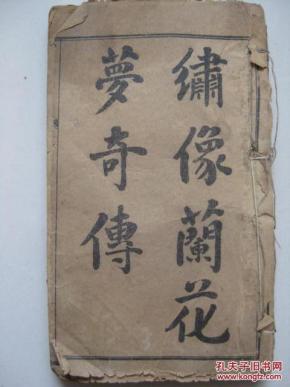 繡像蘭花
夢奇傳
孔夫子旧书网
www.kongfz.com